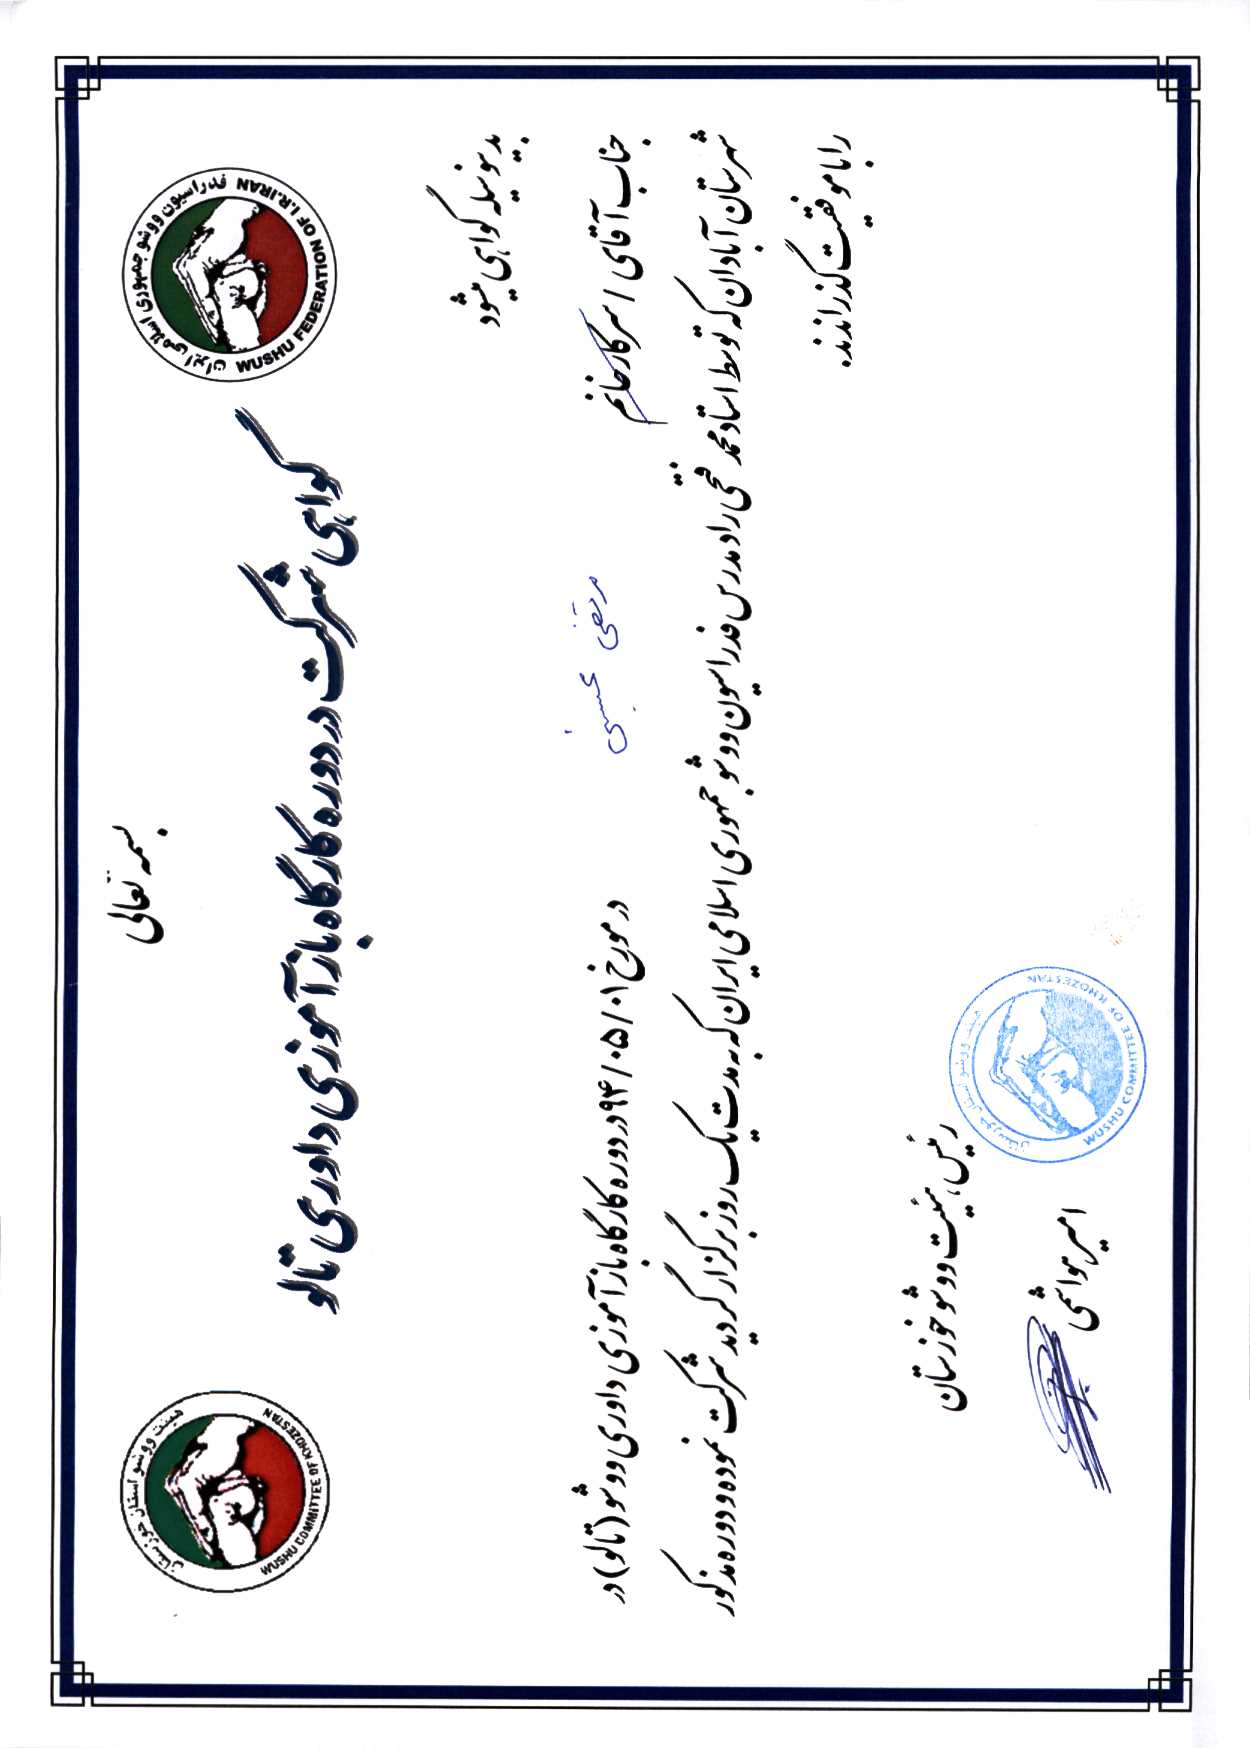 بسمه تعالی
فدراسیون ووشو جمهوری اسلامی ایران
WUSHU FEDERATION OF I.R.IRAN
هیئت ووشو استان خوزستان
WUSHU COMMITTEE OF KHOZESTAN
گواهی شرکت در دوره کارگاه بازآموزی داوری تالو
بدینوسیله گواهی میشود
جناب آقای / سرکار خانم مرتضی در مورخ ۹۴/۰۵/۰۱ در دوره کارگاه بازآموزی داوری ووشو (تالو) در
شهرستان آبادان که توسط استاد محمد فتحی راد مدرس فدراسیون ووشو جمهوری اسلامی ایران که به مدت یک روز برگزار گردید شرکت نموده و دوره مذکور
را با موفقیت گذراندند.
رئیس هیئت ووشو خوزستان
امیر هواشمی
هیئت ووشو استان خوزستان
WUSHU COMMITTEE OF KHOZESTAN